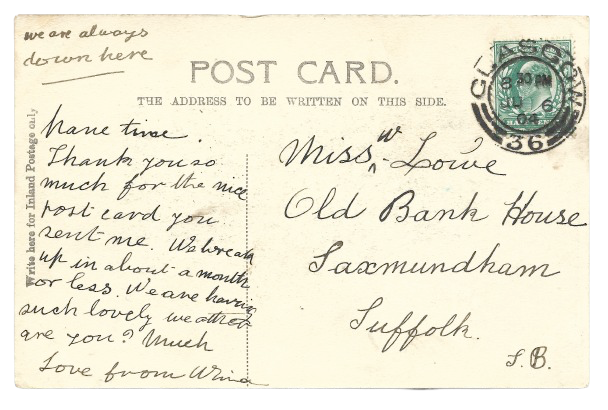 we are always
down here
POST CARD.
THE ADDRESS TO BE WRITTEN ON THIS SIDE.
Write here for Inland Postage only
have time.
Thank you so
much for the nice
post card you
sent me. We break
up in about a month
or less. We are having
such lovely weather
are you? Much
Love from
Miss W. Lowe
Old Bank House
Saxmundham
Suffolk.
GLASGOW
30 PM
JL 6
04
36